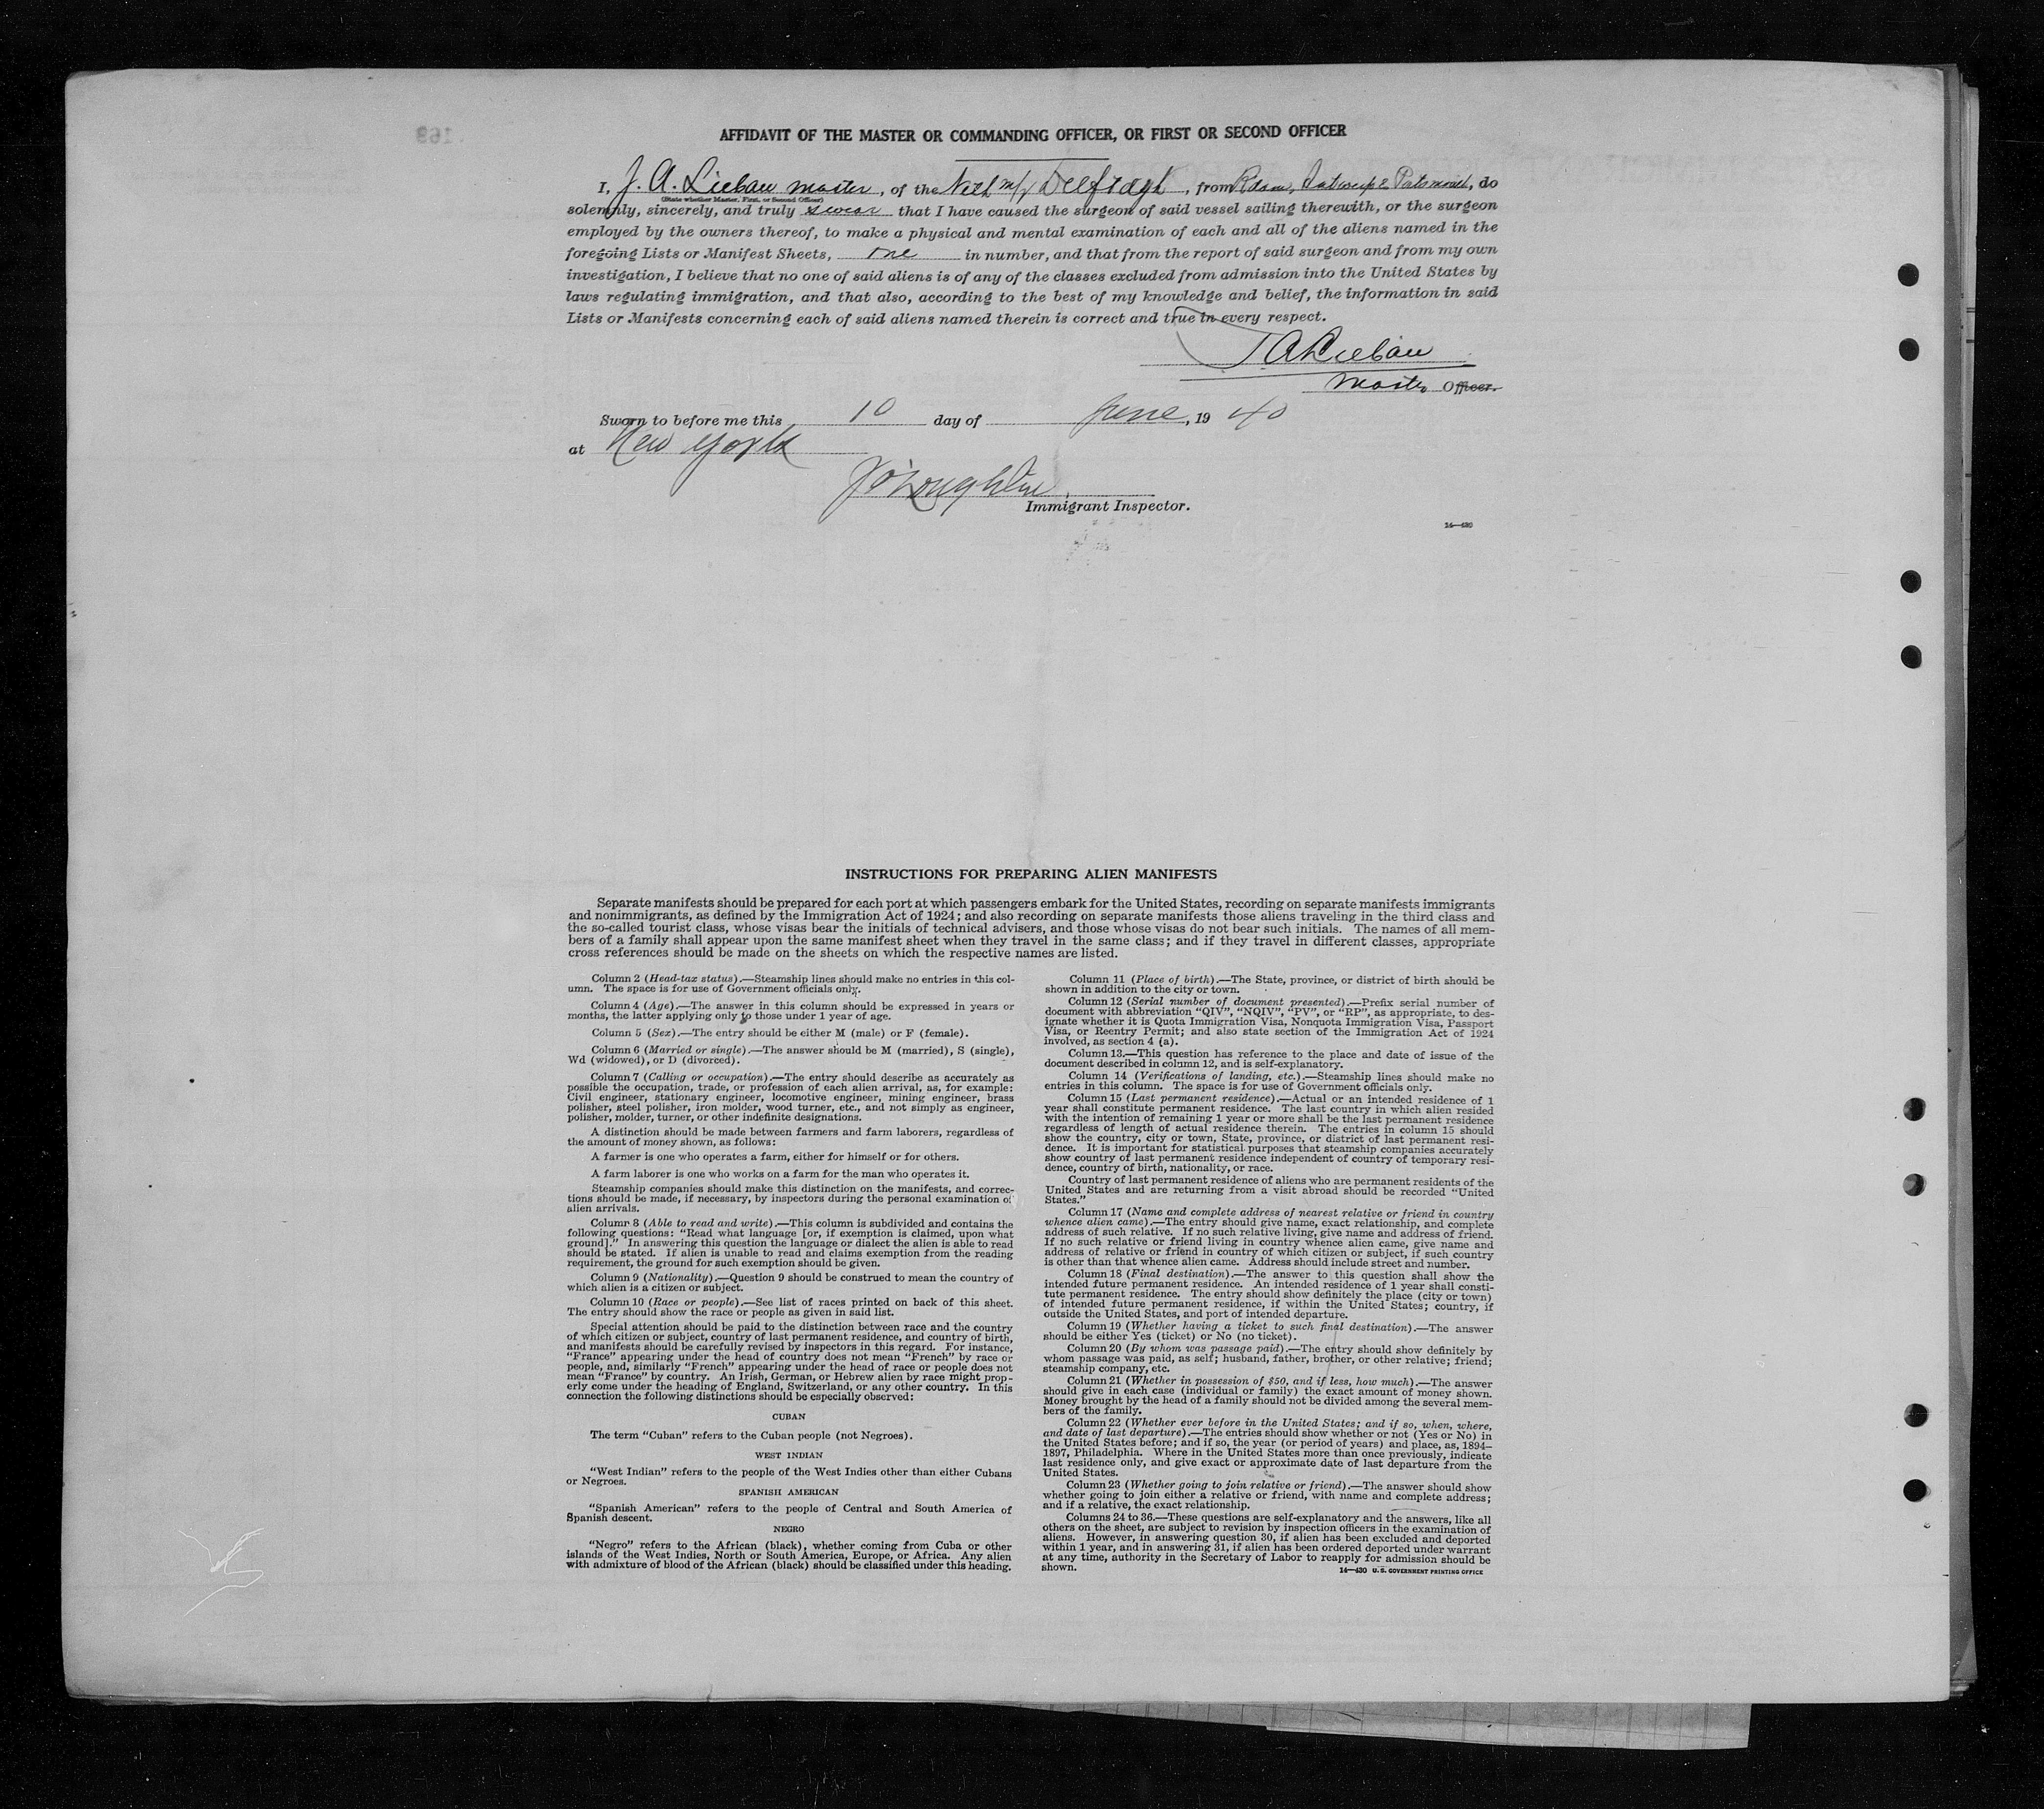 169
AFFIDAVIT OF THE MASTER OR COMMANDING OFFICER, OR FIRST OR SECOND OFFICER
I, J. A. Liebau master, of the Neth m/v Delfdyk, from Rdam, Antwerp & Portsmouth, do
(State whether Master, First, or Second Officer)
solemnly, sincerely, and truly swear that I have caused the surgeon of said vessel sailing therewith, or the surgeon
employed by the owners thereof, to make a physical and mental examination of each and all of the aliens named in the
foregoing Lists or Manifest Sheets, one in number, and that from the report of said surgeon and from my own
investigation, I believe that no one of said aliens is of any of the classes excluded from admission into the United States by
laws regulating immigration, and that also, according to the best of my knowledge and belief, the information in said
Lists or Manifests concerning each of said aliens named therein is correct and true in every respect.
J A Liebau
Master Officer.
Sworn to before me this 10 day of June, 19 40
at New York
J O'Loughlin
Immigrant Inspector.
14—430
INSTRUCTIONS FOR PREPARING ALIEN MANIFESTS
Separate manifests should be prepared for each port at which passengers embark for the United States, recording on separate manifests immigrants
and nonimmigrants, as defined by the Immigration Act of 1924; and also recording on separate manifests those aliens traveling in the third class and
the so-called tourist class, whose visas bear the initials of technical advisers, and those whose visas do not bear such initials. The names of all mem-
bers of a family shall appear upon the same manifest sheet when they travel in the same class; and if they travel in different classes, appropriate
cross references should be made on the sheets on which the respective names are listed.
Column 2 (Head-tax status).—Steamship lines should make no entries in this col-
umn. The space is for use of Government officials only.
Column 4 (Age).—The answer in this column should be expressed in years or
months, the latter applying only to those under 1 year of age.
Column 5 (Sex).—The entry should be either M (male) or F (female).
Column 6 (Married or single).—The answer should be M (married), S (single),
Wd (widowed), or D (divorced).
Column 7 (Calling or occupation).—The entry should describe as accurately as
possible the occupation, trade, or profession of each alien arrival, as, for example:
Civil engineer, stationary engineer, locomotive engineer, mining engineer, brass
polisher, steel polisher, iron molder, wood turner, etc., and not simply as engineer,
polisher, molder, turner, or other indefinite designations.
A distinction should be made between farmers and farm laborers, regardless of
the amount of money shown, as follows:
A farmer is one who operates a farm, either for himself or for others.
A farm laborer is one who works on a farm for the man who operates it.
Steamship companies should make this distinction on the manifests, and correc-
tions should be made, if necessary, by inspectors during the personal examination of
alien arrivals.
Column 8 (Able to read and write).—This column is subdivided and contains the
following questions: "Read what language [or, if exemption is claimed, upon what
ground]." In answering this question the language or dialect the alien is able to read
should be stated. If alien is unable to read and claims exemption from the reading
requirement, the ground for such exemption should be given.
Column 9 (Nationality).—Question 9 should be construed to mean the country of
which alien is a citizen or subject.
Column 10 (Race or people).—See list of races printed on back of this sheet.
The entry should show the race or people as given in said list.
Special attention should be paid to the distinction between race and the country
of which citizen or subject, country of last permanent residence, and country of birth,
and manifests should be carefully revised by inspectors in this regard. For instance,
"France" appearing under the head of country does not mean "French" by race or
people, and, similarly "French" appearing under the head of race or people does not
mean "France" by country. An Irish, German, or Hebrew alien by race might prop-
erly come under the heading of England, Switzerland, or any other country. In this
connection the following distinctions should be especially observed:
CUBAN
The term "Cuban" refers to the Cuban people (not Negroes).
WEST INDIAN
"West Indian" refers to the people of the West Indies other than either Cubans
or Negroes.
SPANISH AMERICAN
"Spanish American" refers to the people of Central and South America of
Spanish descent.
NEGRO
"Negro" refers to the African (black), whether coming from Cuba or other
islands of the West Indies, North or South America, Europe, or Africa. Any alien
with admixture of blood of the African (black) should be classified under this heading.
Column 11 (Place of birth).—The State, province, or district of birth should be
shown in addition to the city or town.
Column 12 (Serial number of document presented).—Prefix serial number of
document with abbreviation "QIV", "NQIV", "PV", or "RP", as appropriate, to des-
ignate whether it is Quota Immigration Visa, Nonquota Immigration Visa, Passport
Visa, or Reentry Permit; and also state section of the Immigration Act of 1924
involved, as section 4 (a).
Column 13.—This question has reference to the place and date of issue of the
document described in column 12, and is self-explanatory.
Column 14 (Verifications of landing, etc.).—Steamship lines should make no
entries in this column. The space is for use of Government officials only.
Column 15 (Last permanent residence).—Actual or an intended residence of 1
year shall constitute permanent residence. The last country in which alien resided
with the intention of remaining 1 year or more shall be the last permanent residence
regardless of length of actual residence therein. The entries in column 15 should
show the country, city or town, State, province, or district of last permanent resi-
dence. It is important for statistical purposes that steamship companies accurately
show country of last permanent residence independent of country of temporary resi-
dence, country of birth, nationality, or race.
Country of last permanent residence of aliens who are permanent residents of the
United States and are returning from a visit abroad should be recorded "United
States."
Column 17 (Name and complete address of nearest relative or friend in country
whence alien came).—The entry should give name, exact relationship, and complete
address of such relative. If no such relative living, give name and address of friend.
If no such relative or friend living in country whence alien came, give name and
address of relative or friend in country of which citizen or subject, if such country
is other than that whence alien came. Address should include street and number.
Column 18 (Final destination).—The answer to this question shall show the
intended future permanent residence. An intended residence of 1 year shall consti-
tute permanent residence. The entry should show definitely the place (city or town)
of intended future permanent residence, if within the United States; country, if
outside the United States, and port of intended departure.
Column 19 (Whether having a ticket to such final destination).—The answer
should be either Yes (ticket) or No (no ticket).
Column 20 (By whom was passage paid).—The entry should show definitely by
whom passage was paid, as self; husband, father, brother, or other relative; friend;
steamship company, etc.
Column 21 (Whether in possession of $50, and if less, how much).—The answer
should give in each case (individual or family) the exact amount of money shown.
Money brought by the head of a family should not be divided among the several mem-
bers of the family.
Column 22 (Whether ever before in the United States; and if so, when, where,
and date of last departure).—The entries should show whether or not (Yes or No) in
the United States before; and if so, the year (or period of years) and place, as, 1894–
1897, Philadelphia. Where in the United States more than once previously, indicate
last residence only, and give exact or approximate date of last departure from the
United States.
Column 23 (Whether going to join relative or friend).—The answer should show
whether going to join either a relative or friend, with name and complete address;
and if a relative, the exact relationship.
Columns 24 to 36.—These questions are self-explanatory and the answers, like all
others on the sheet, are subject to revision by inspection officers in the examination of
aliens. However, in answering question 30, if alien has been excluded and deported
within 1 year, and in answering 31, if alien has been ordered deported under warrant
at any time, authority in the Secretary of Labor to reapply for admission should be
shown.
14—430 U. S. GOVERNMENT PRINTING OFFICE